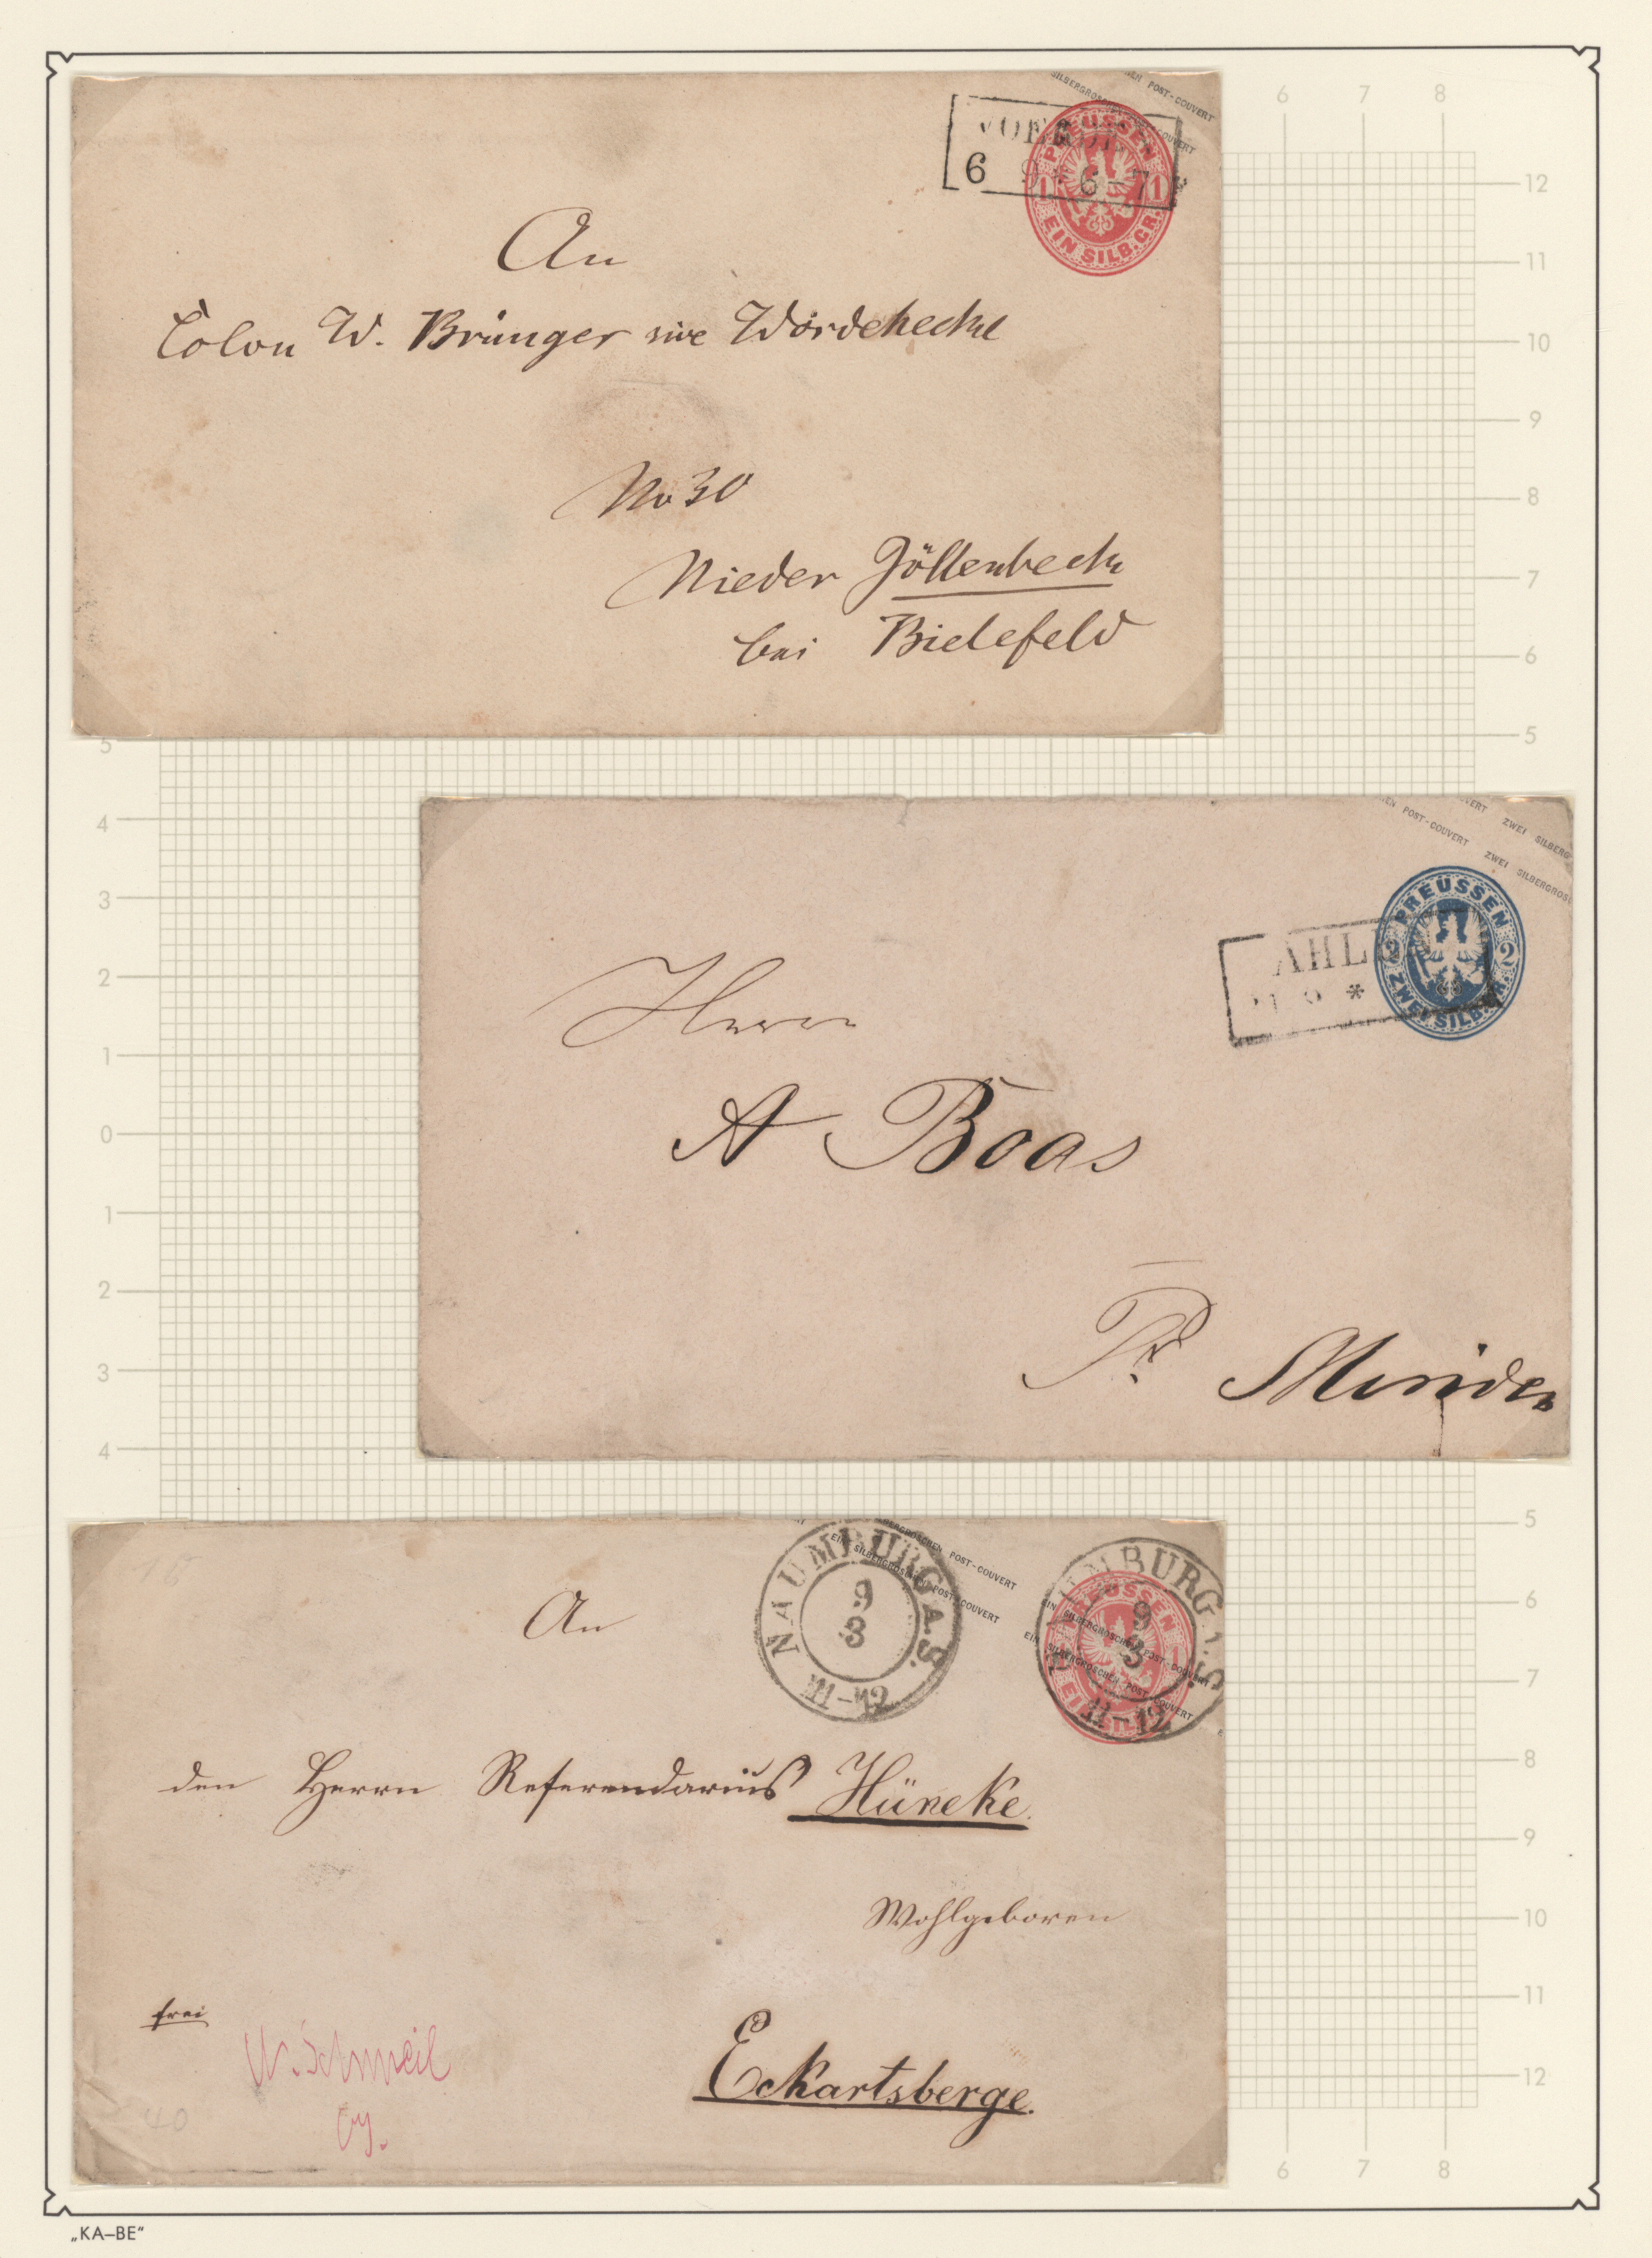 EIN SILBERGROSCHEN POST-COUVERT
6 9 * 6-7
PREUSSEN
1 1
EIN SILB.GR.
An
Colon W. Brünger sive Wördehecke
No 30
Nieder Jöllenbeck
bei Bielefeld
POST-COUVERT ZWEI SILBERG
POST-COUVERT ZWEI SILBERGROS
AHL
*
PREUSSEN
2 2
ZWEI SILB.GR.
Herrn
A Boas
Pr Minden
EIN SILBERGROSCHEN POST-COUVERT
EIN SILBERGROSCHEN POST-COUVERT
NAUMBURG A.S.
9
3
11-12
NAUMBURG A.S
9
3
11-12
PREUSSEN
EIN SILBERGROSCHEN POST-COUVERT
EIN SILBERGROSCHEN POST-COUVERT
An
den Herrn Referendarius Hüneke.
Wohlgeboren
frei
Eckartsberge.
40
6 7 8
12
11
10
9
8
7
6
5 5
4
3
2
1
0
1
2
3
4
5
6
7
8
9
10
11
12
6 7 8
„KA–BE“